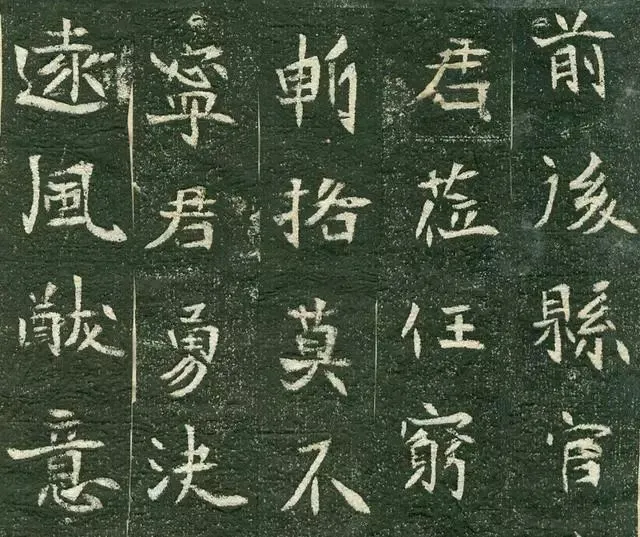 前後縣官
君莅任窮
斬挌莫不
寧君勇決
遠風黻意